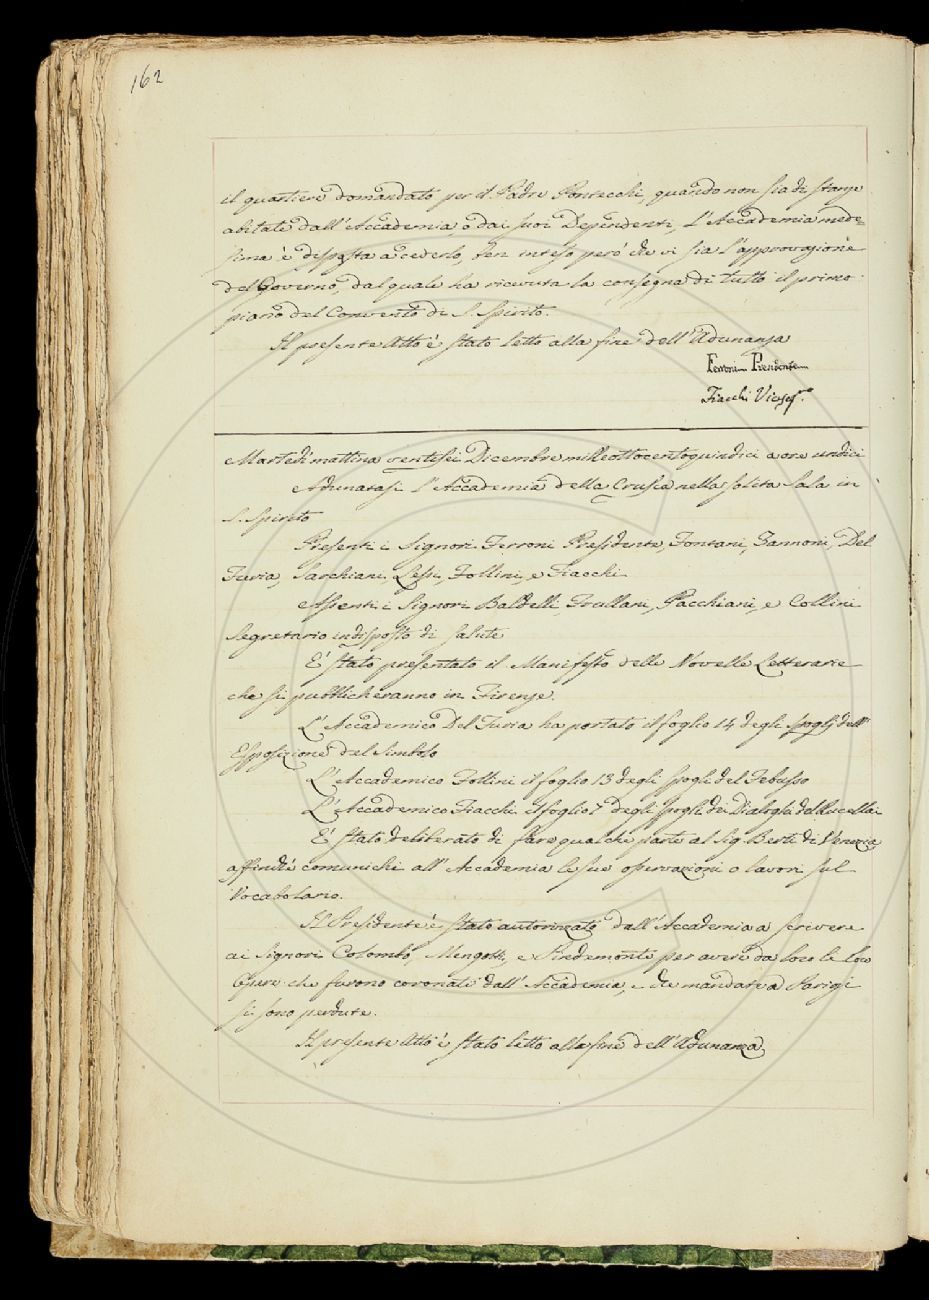 162
il quartiere domandato per il Padre Pontecchi, quando non sia di stanze
abitate dall'Accademia, o dai suoi Dependenti, L'Accademia mede=
sima è disposta a cederlo, ben inteso però che vi sia l'approvazione
del Governo, dal quale ha ricevuta la consegna di tutto il primo
piano del Convento di S. Spirito.
Il presente Atto è stato letto alla fine dell'Adunanza
Ferroni Presidente
Fiacchi Vice Seg.º
Martedì mattina ventisei Dicembre milleottocentoquindici a ore undici
Adunatasi l'Accademia della Crusca nella solita Sala in
S. Spirito
Presenti i Signori Ferroni Presidente, Fontani, Zannoni, Del
Furia, Sarchiani, Lessi, Follini, e Fiacchi
Assenti i Signori Baldelli, Frullani, Pacchiani, e Collini
Segretario indisposto di salute
E' stato presentato il Manifesto delle Novelle Letterarie
che si pubblicheranno in Firenze.
L'Accademico Del Furia ha portato il foglio 14 degli spogli dell'
Esposizione del Simbolo
L'Accademico Follini il foglio 13 degli spogli del Febusso
L'Accademico Fiacchi il foglio 7 degli spogli dei Dialoghi del Rucellai
E' stato deliberato di fare qualche parte al Sig. Berti di Venezia
affinchè comunichi all'Accademia le sue osservazioni o lavori sul
Vocabolario.
Il Presidente è stato autorizzato dall'Accademia a scrivere
ai Signori Colombo, Mengotti, e Pindemonte per avere da loro le loro
Opere che furono coronate dall'Accademia, e che mandate a Parigi
si sono perdute.
Il presente Atto è stato letto alla fine dell'Adunanza